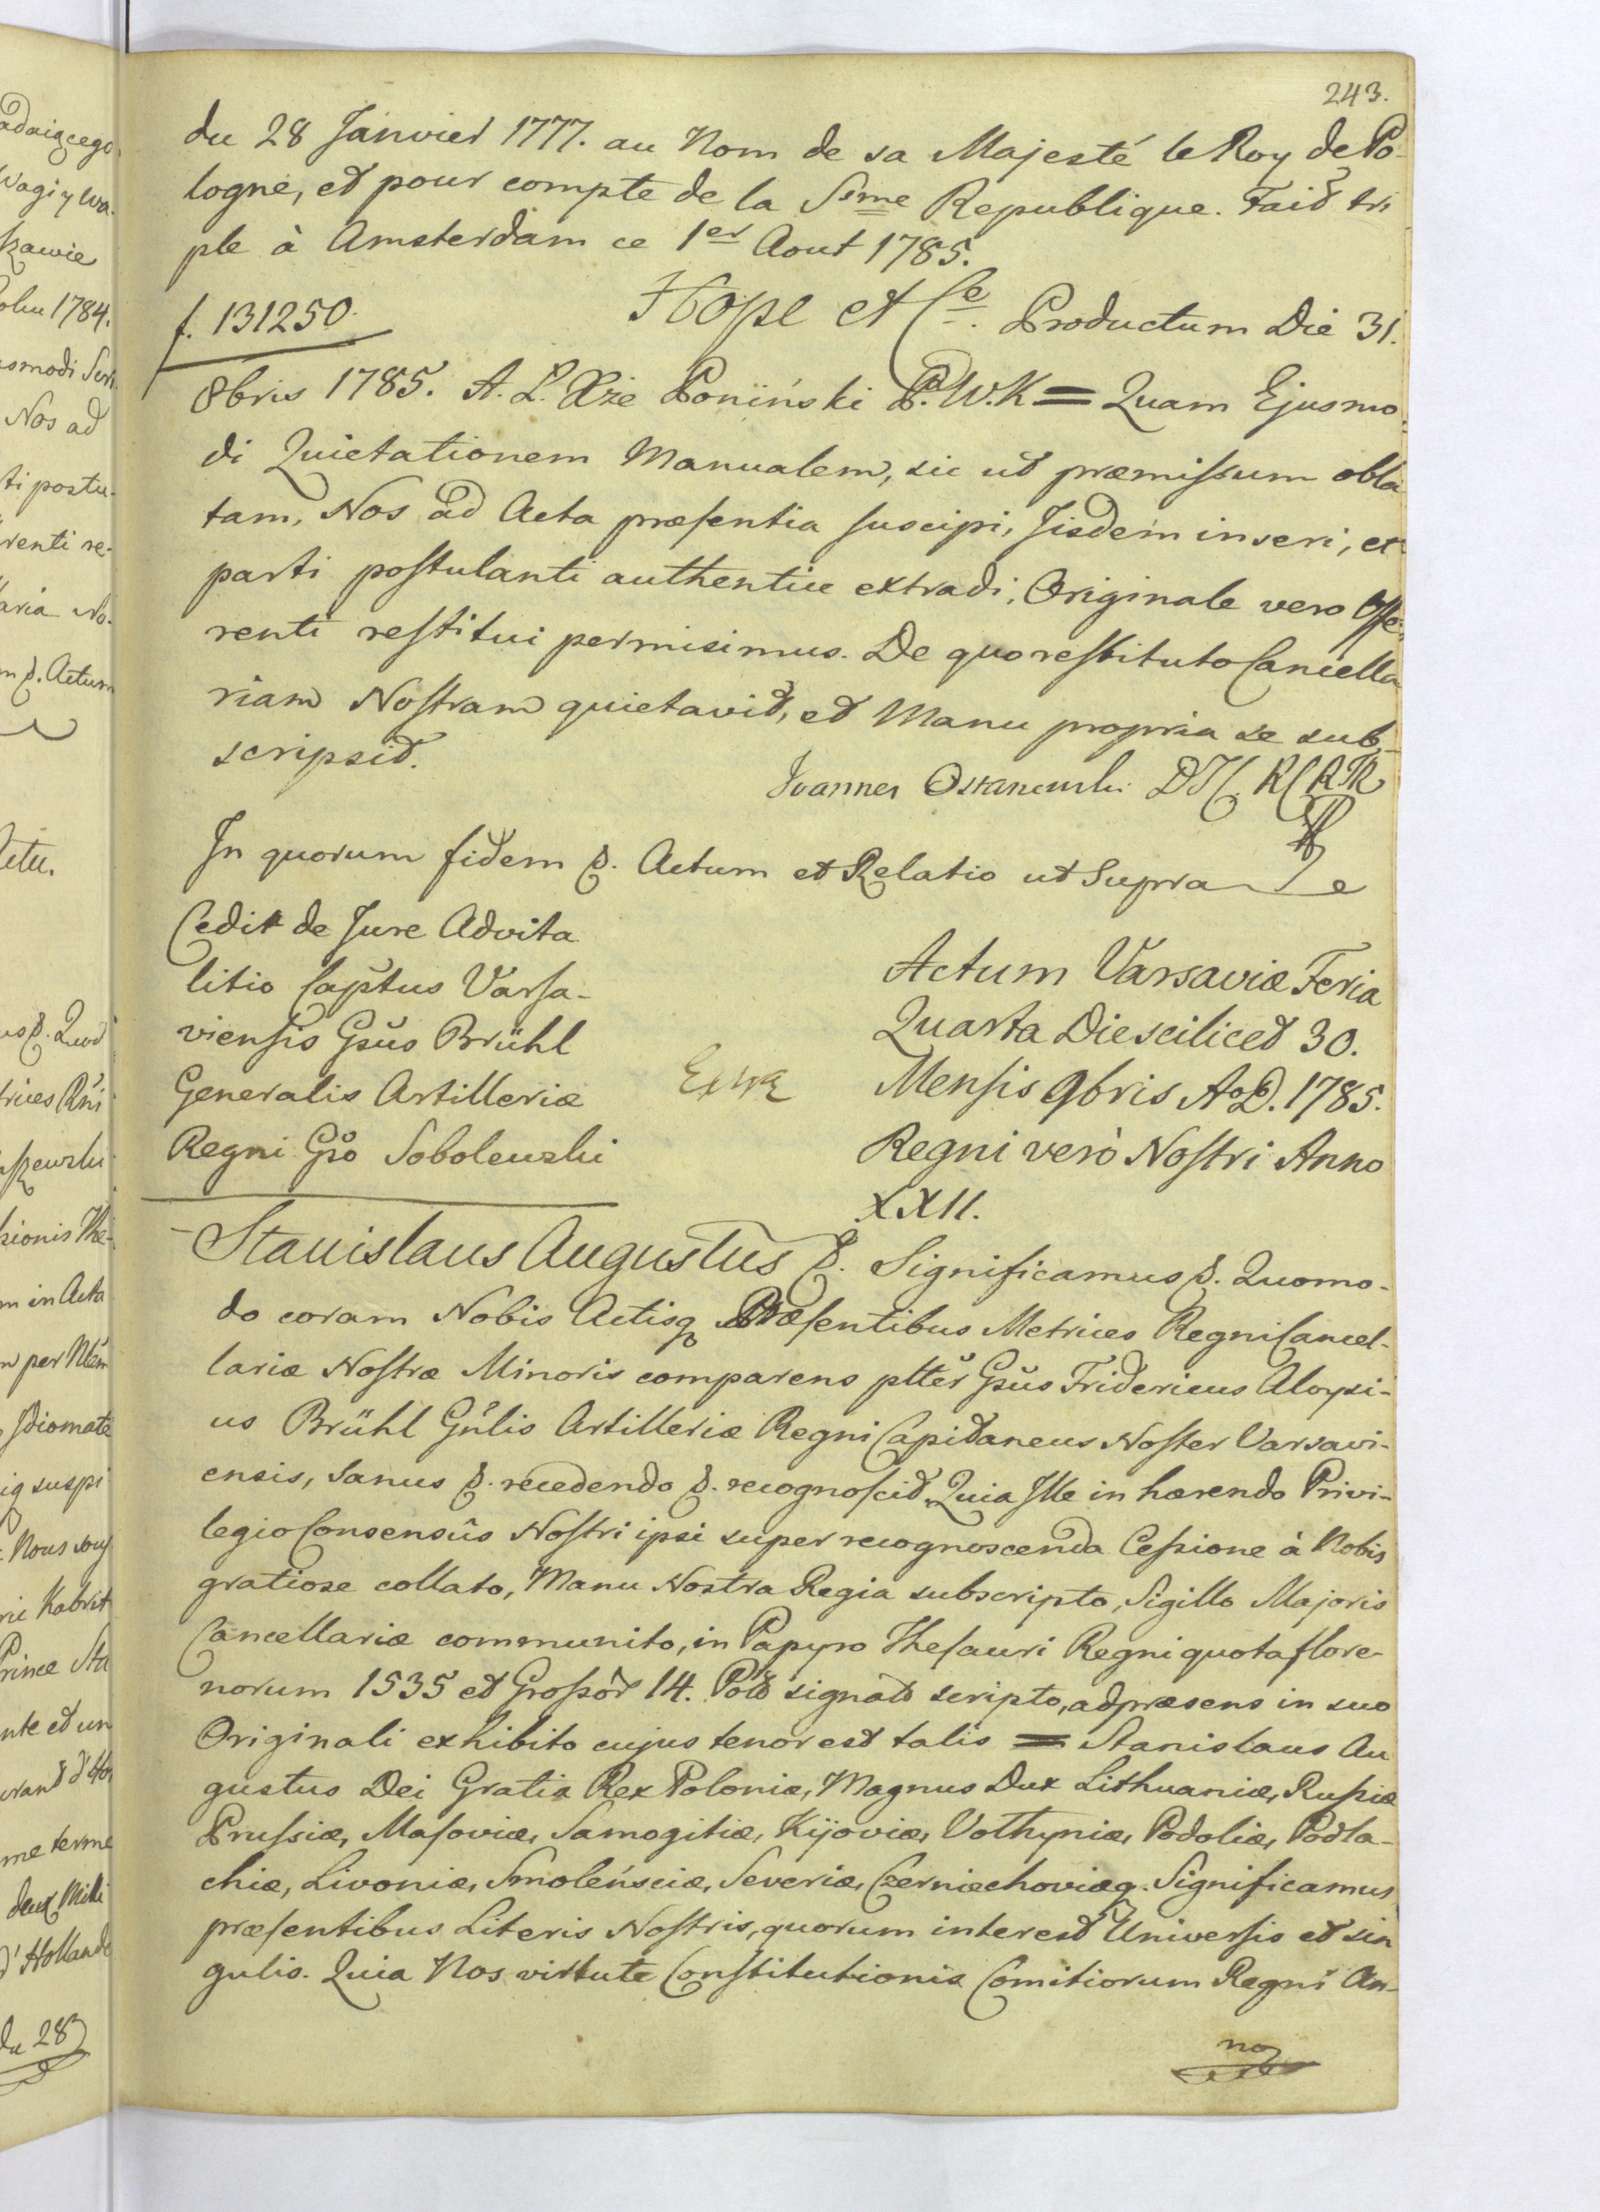 243.
du 28 Janvier 1777. au Nom de sa Majesté le Roy de Po-
logne, et pour compte de la Ssme Republique. Fait tri
ple à Amsterdam ce 1er Aout 1785.
f. 131250. Hope et Ce. Productum Die 31.
8bris 1785. A. L. Xże Poniński P.W.K = Quam Ejusmo-
di Quietationem Manualem, sic ut præmissum obla
tam, Nos ad Acta præsentia suscipi, Iisdem inseri, et
parti postulanti authentice extradi, Originale vero Offe-
renti restitui permisimus. De quo restituto Cancella
riam Nostram quietavit, et Manu propria se sub-
scripsit.
Joannes
In quorum fidem &. Actum et Relatio ut Supra
Cedit de Jure Advita
litio Captus Varsa-
viensis Gsus Brühl
Generalis Artilleriæ
Regni Gso Sobolewski
Actum Varsaviæ Feria
Quarta Die scilicet 30.
Mensis 9bris A.D. 1785.
Regni verò Nostri Anno
XXII.
Stanislaus Augustus &. Significamus &. Quomo-
do coram Nobis Actisq Præsentibus Metrices Regni Cancel-
lariæ Nostræ Minoris comparens pltter Gsus Fridericus Aloysi-
us Brühl Gnlis Artilleriæ Regni Capitaneus Noster Varsavi-
ensis, Sanus &. recedendo &. recognoscit, Quia Ille in hærendo Privi-
legio Consensûs Nostri ipsi super recognoscenda Cessione à Nobis
gratiose collato, Manu Nostra Regia subscripto, Sigillo Majoris
Cancellariæ communito, in Papyro Thesauri Regni quota flore-
norum 1535 et Grossor 14. Pol signato scripto, ad præsens in suo
Originali exhibito cujus tenor est talis = Stanislaus Au
gustus Dei Gratia Rex Poloniæ, Magnus Dux Lithuaniæ, Russiæ
Prussiæ, Masoviæ, Samogitiæ, Kijoviæ, Volhyniæ, Podoliæ, Podla-
chiæ, Livoniæ, Smolénsciæ, Severiæ, Czerniechoviæq. Significamus
præsentibus Literis Nostris, quorum interest Universis et sin
gulis. Quia Nos virtute Constitutionis Comitiorum Regni An-
no